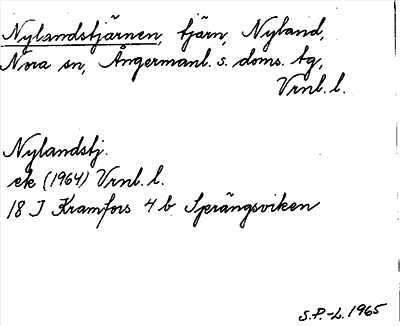 Nylandstjärnen, tjärn, Nyland,
Nora sn, Ångermanl. s. doms. tg,
Vrnl. l.
Nylandstj.
ek (1964) Vrnl. l.
18 I Kramfors 4 b Sprängsviken
S.P.-L. 1965